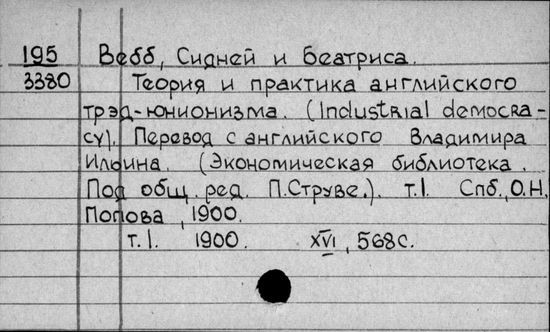 195 Вебб, Сидней и Беатриса.
3380 Теория и практика английского
трэд-юнионизма. (Industrial democra-
cy). Перевод с английского Владимира
Ильина. (Экономическая библиотека.
Под общ. ред. П.Струве.). т.I. Спб., О.Н.
Попова, 1900.
т.I. 1900. XVI, 568с.